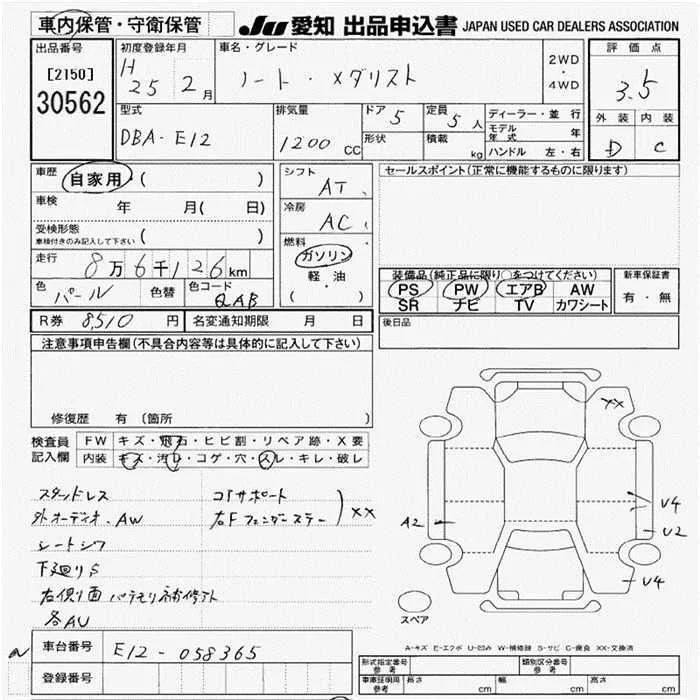 車内保管・守衛保管
JU 愛知 出品申込書 JAPAN USED CAR DEALERS ASSOCIATION
出品番号
[2150]
30562
初度登録年月
H25 2月
車名・グレード
ノート・メダリスト
2WD
・
4WD
評価点
3.5
外装 内装
D C
型式
DBA-E12
排気量
1200 CC
ドア 5
形状
定員 5人
積載 kg
ディーラー・並行
モデル年式 年
ハンドル 左・右
車歴
自家用 ( )
車検 年 月( 日)
受検形態
車検付きのみ記入して下さい ( )
走行 8万6千126km
色 パール 色替 色コード QAB
シフト AT
冷房 AC
燃料
ガソリン
軽・油
( )
セールスポイント(正常に機能するものに限ります)
装備品(純正品に限り○をつけてください)
PS PW エアB AW
SR ナビ TV カワシート
新車保証書
有・無
R券 8,510円 名変通知期限 月 日
後日品
注意事項申告欄(不具合内容等は具体的に記入して下さい)
修復歴 有 (箇所
検査員
記入欄
FW キズ・飛石・ヒビ割・リペア跡・X要
内装 キズ・汚れ・コゲ・穴・スレ・キレ・破レ
スタッドレス コアサポート
外オーディオ、AW 右Fフェンダーステー ) XX
シートシワ
下廻りS
右側面パテモリ補修アト
各AU
XX
A2
U4
U2
U4
スペア
A-キズ E-エクボ U-凹み W-補修跡 S-サビ C-腐食 XX-交換済
車台番号 E12-058365
登録番号
形式指定番号
参考
類別区分番号
参考
車庫証明用
参考
長さ cm 幅 cm 高さ cm